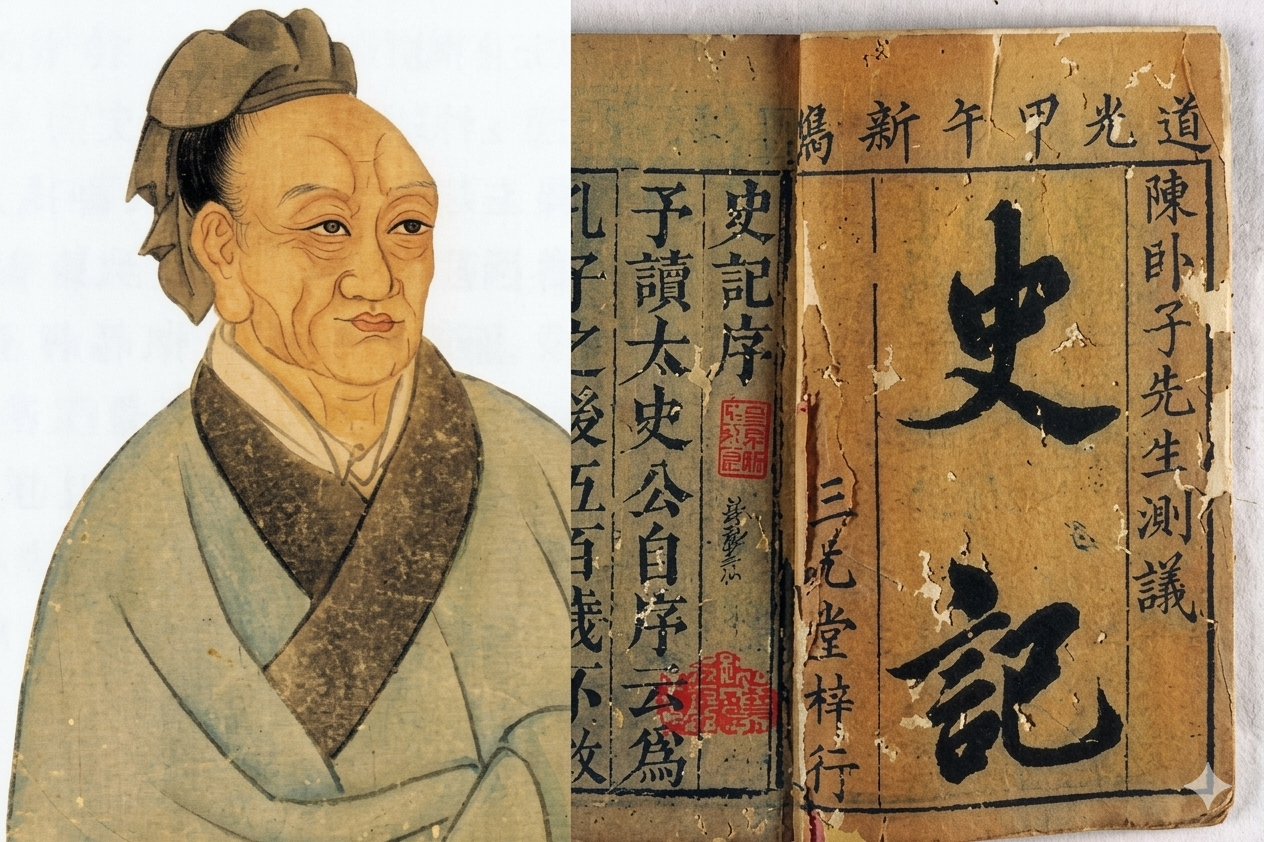 道光甲午新鐫
陳卧子先生測議
史記
三堂梓行
史記序
予讀太史公自序云爲
孔子之後五百歲不